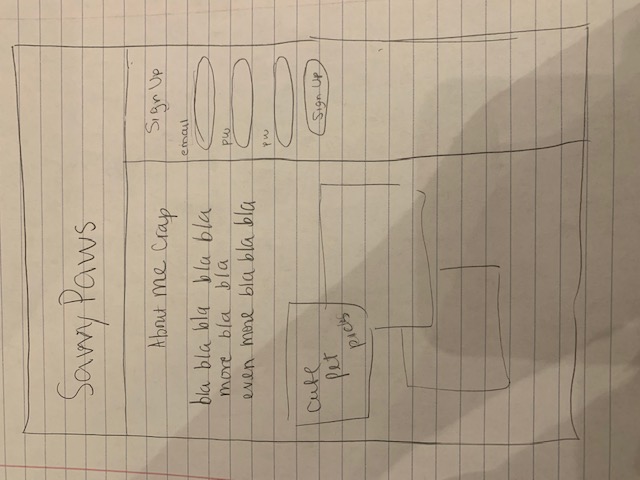 Savvy Paws
About me Crap
bla bla bla bla bla
more bla bla
even more bla bla bla
cute
pet
pics
Sign Up
email
pw
pw
Sign Up